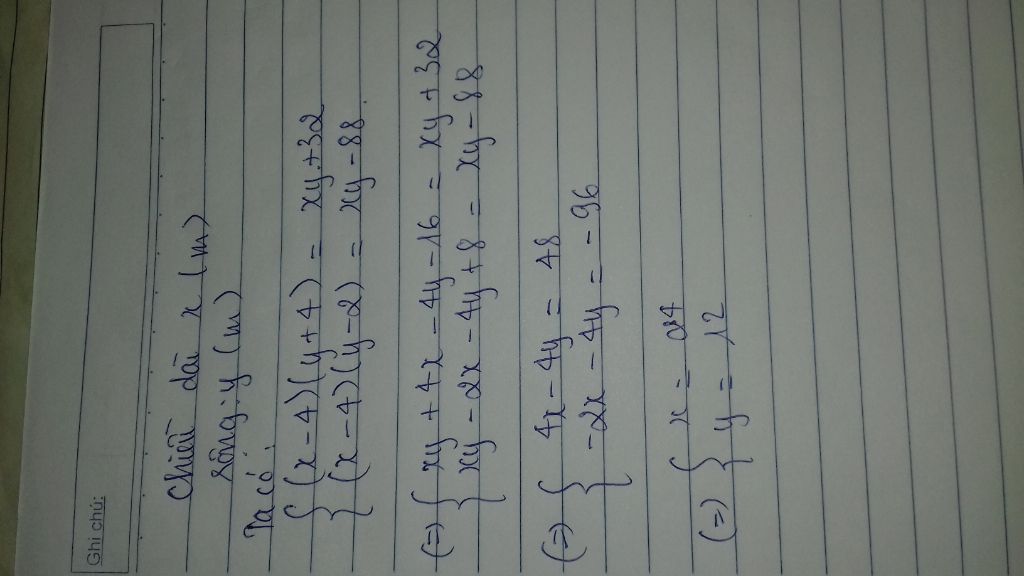 Ghi chú:
Chiều dài x (m)
rộng: y (m)
Ta có:
{ (x-4)(y+4) = xy+32
{ (x-4)(y-2) = xy-88.
(=) { xy + 4x - 4y - 16 = xy + 32
{ xy - 2x - 4y + 8 = xy - 88
(=) { 4x - 4y = 48
{ -2x - 4y = -96
(=) { x = 24
{ y = 12